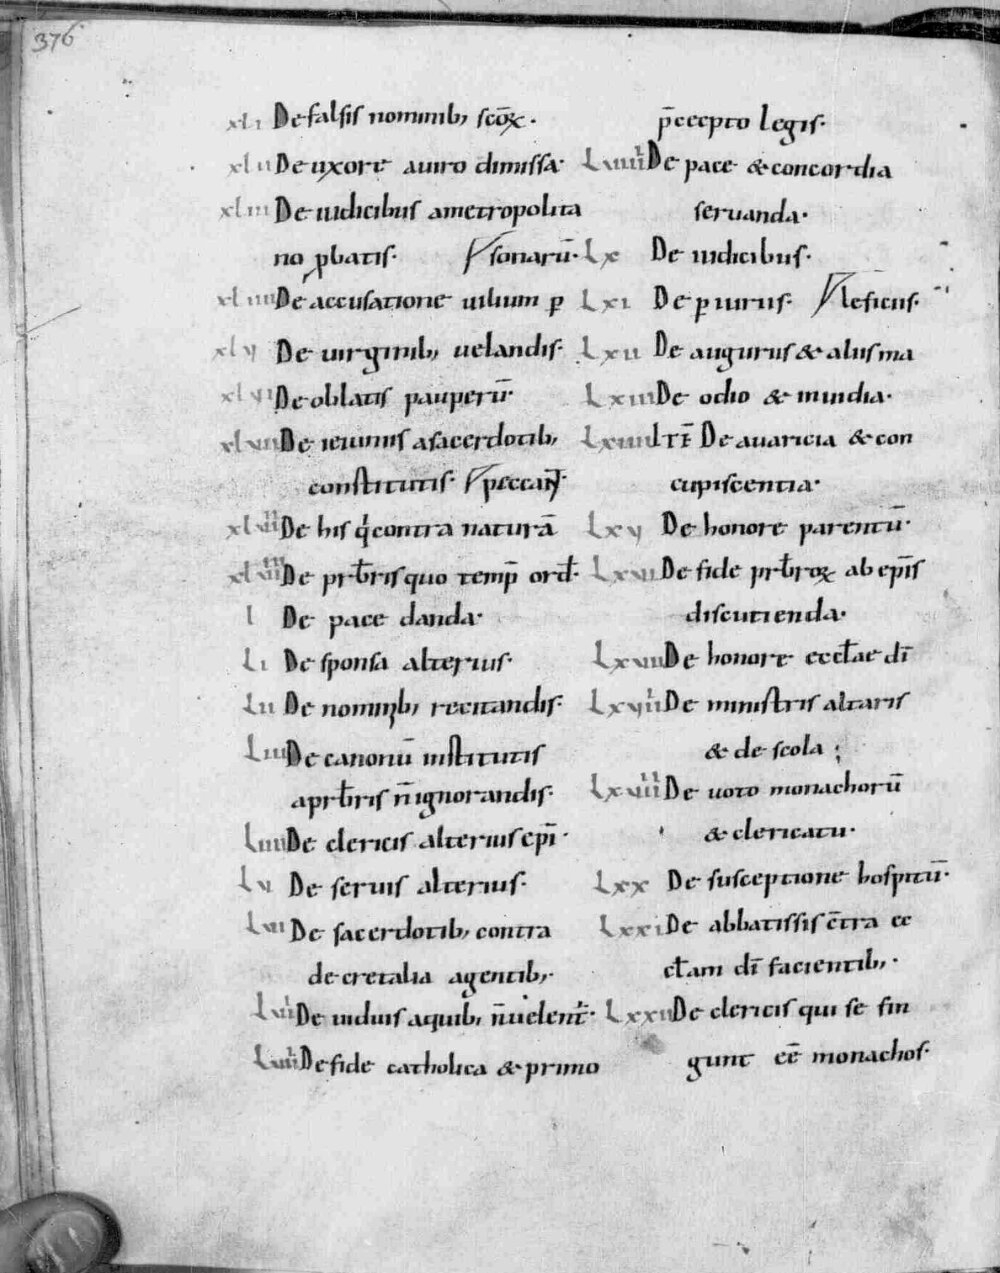 376
xli De falsis nominib; scōꝝ.
xlii De uxore auiro dimissa.
xliii De iudicibus ametropolita
no ꝓbatis. sonarū.
xliiii De accusatione uilium ꝑ
xlv De uirginib; uelandis.
xlvi De oblatis pauperū.
xlvii De ieiuniis asacerdotib;
constitutis. peccant̄.
xlviii De his q̇ contra naturā
xlviiii De prb̄ris quo temp̄ ord̄.
l De pace danda.
Li De sponsa alterius.
Lii De nominib; recitandis.
Liii De canonū institutis
aprb̄ris n̄ ignorandis.
Liiii De clericis alterius epī.
Lv De seruis alterius.
Lvi De sacerdotib; contra
decretalia agentib;.
Lvii De uiduis aquib; n̄ uelent̄.
Lviii De fide catholica & primo
p̄cepto legis.
Lviiii De pace & concordia
seruanda.
Lx De iudicibus.
Lxi De ꝑiuriis. leficiis.
Lxii De auguriis & aliis ma
Lxiii De odio & inuidia.
Lxiiii ITĒ De auaricia & con
cupiscentia.
Lxv De honore parentū.
Lxvi De fide prb̄roꝝ ab ep̄is
discutienda.
Lxvii De honore eccl̄ae dī
Lxviii De ministris altaris
& de scola;
Lxviiii De uoto monachorū
& clericatu.
Lxx De susceptione hospitū.
Lxxi De abbatissis c̄tra ec
cl̄am dī facientib;.
Lxxii De clericis qui se fin
gunt eē monachos.